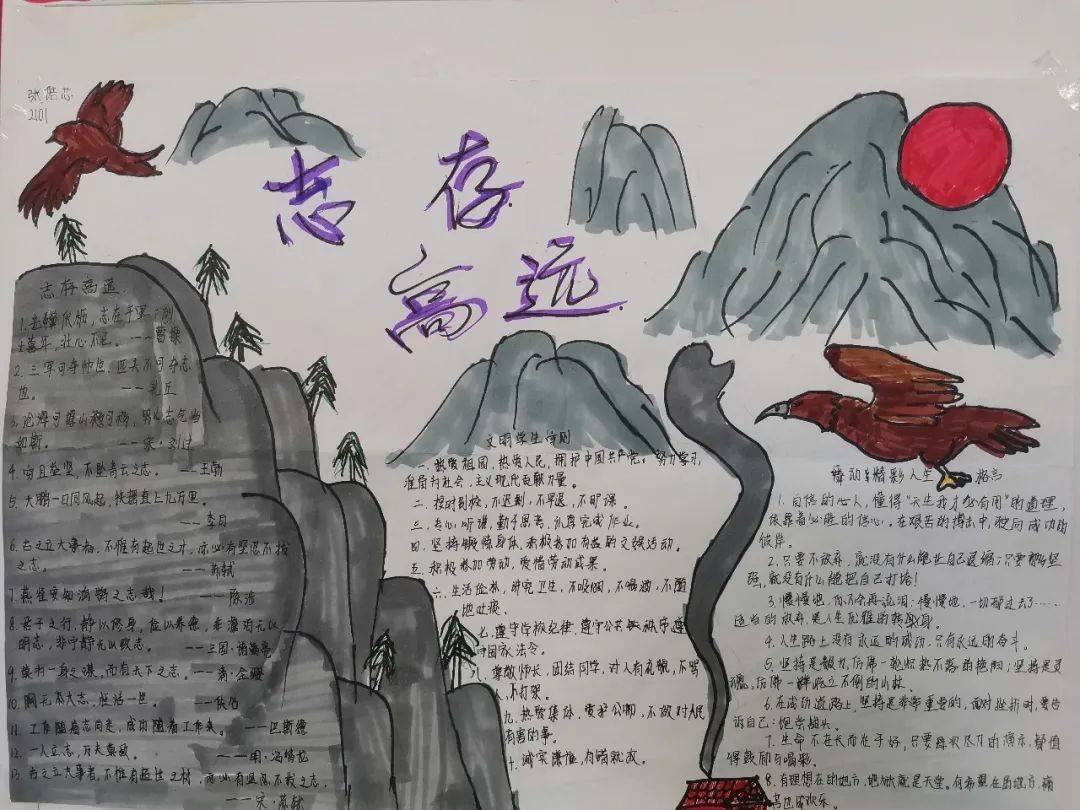 张
2101
志存
高远
志存高远
1. 老骥伏枥，志在千里；烈
士暮年，壮心不已。——曹操
2. 三军可夺帅也，匹夫不可夺志
也。——孔丘
3. 沧海可填山可移，男儿志气当
如斯。——宋·刘过
4. 穷且益坚，不坠青云之志。——王勃
5. 大鹏一日同风起，扶摇直上九万里。
——李白
6. 古之立大事者，不惟有超世之才，亦必有坚忍不拔
之志。——苏轼
7. 燕雀安知鸿鹄之志哉！——陈涉
8. 君子之行，静以修身，俭以养德，非澹泊无以
明志，非宁静无以致远。——三国·诸葛亮
9. 虽有一身之谋，而有天下之志。——清·金缨
10. 胸无大志，枉活一世。
11. 工作随着志向走，成功随着工作来。——巴斯德
12. 一人立志，万夫莫敌。——明·冯梦龙
13. 古之立大事者，不惟有超世之材，亦必有坚忍不拔之志。
——宋·苏轼
文明学生守则
一、热爱祖国，热爱人民，拥护中国共产党。努力学习，
准备为社会主义现代贡献力量。
二、按时到校，不迟到，不早退，不旷课。
三、专心听课，勤于思考，认真完成作业。
四、坚持锻炼身体，积极参加有益的文娱活动。
五、积极参加劳动，爱惜劳动成果。
六、生活俭朴，讲究卫生，不吸烟，不喝酒，不随
地吐痰。
七、遵守学校纪律，遵守公共秩序，遵
守国家法令。
八、尊敬师长，团结同学，对人有礼貌，不骂
人，不打架。
九、热爱集体，爱护公物，不做对人民
有害的事。
十、诚实谦虚，有错就改。
舞动精彩人生 格言
1. 自信的心人，懂得“天生我才必有用”的道理，
依靠着必胜的信心，在艰苦的搏击中，驶向成功的
彼岸。
2. 只要不放弃，就没有什么能让自己退缩；只要够坚
强，就没有什么能把自己打垮！
3. 慢慢地，你不会再流泪；慢慢地，一切都过去了……
适当的放弃，是人生优雅的转身。
4. 人生路上没有永远的成功，只有永远的奋斗。
5. 坚持是毅力，仿佛一轮炽热不落的艳阳；坚持是灵
魂，仿佛一群屹立不倒的山林。
6. 在成功道路上，坚持是非常重要的，面对挫折时，要告
诉自己：
7. 生命不在长而在于好，只要每次尽力的演示，都值
得鼓励与喝彩。
8. 有理想在的地方，地狱就是天堂。有希望在的地方，痛
苦也成欢乐。